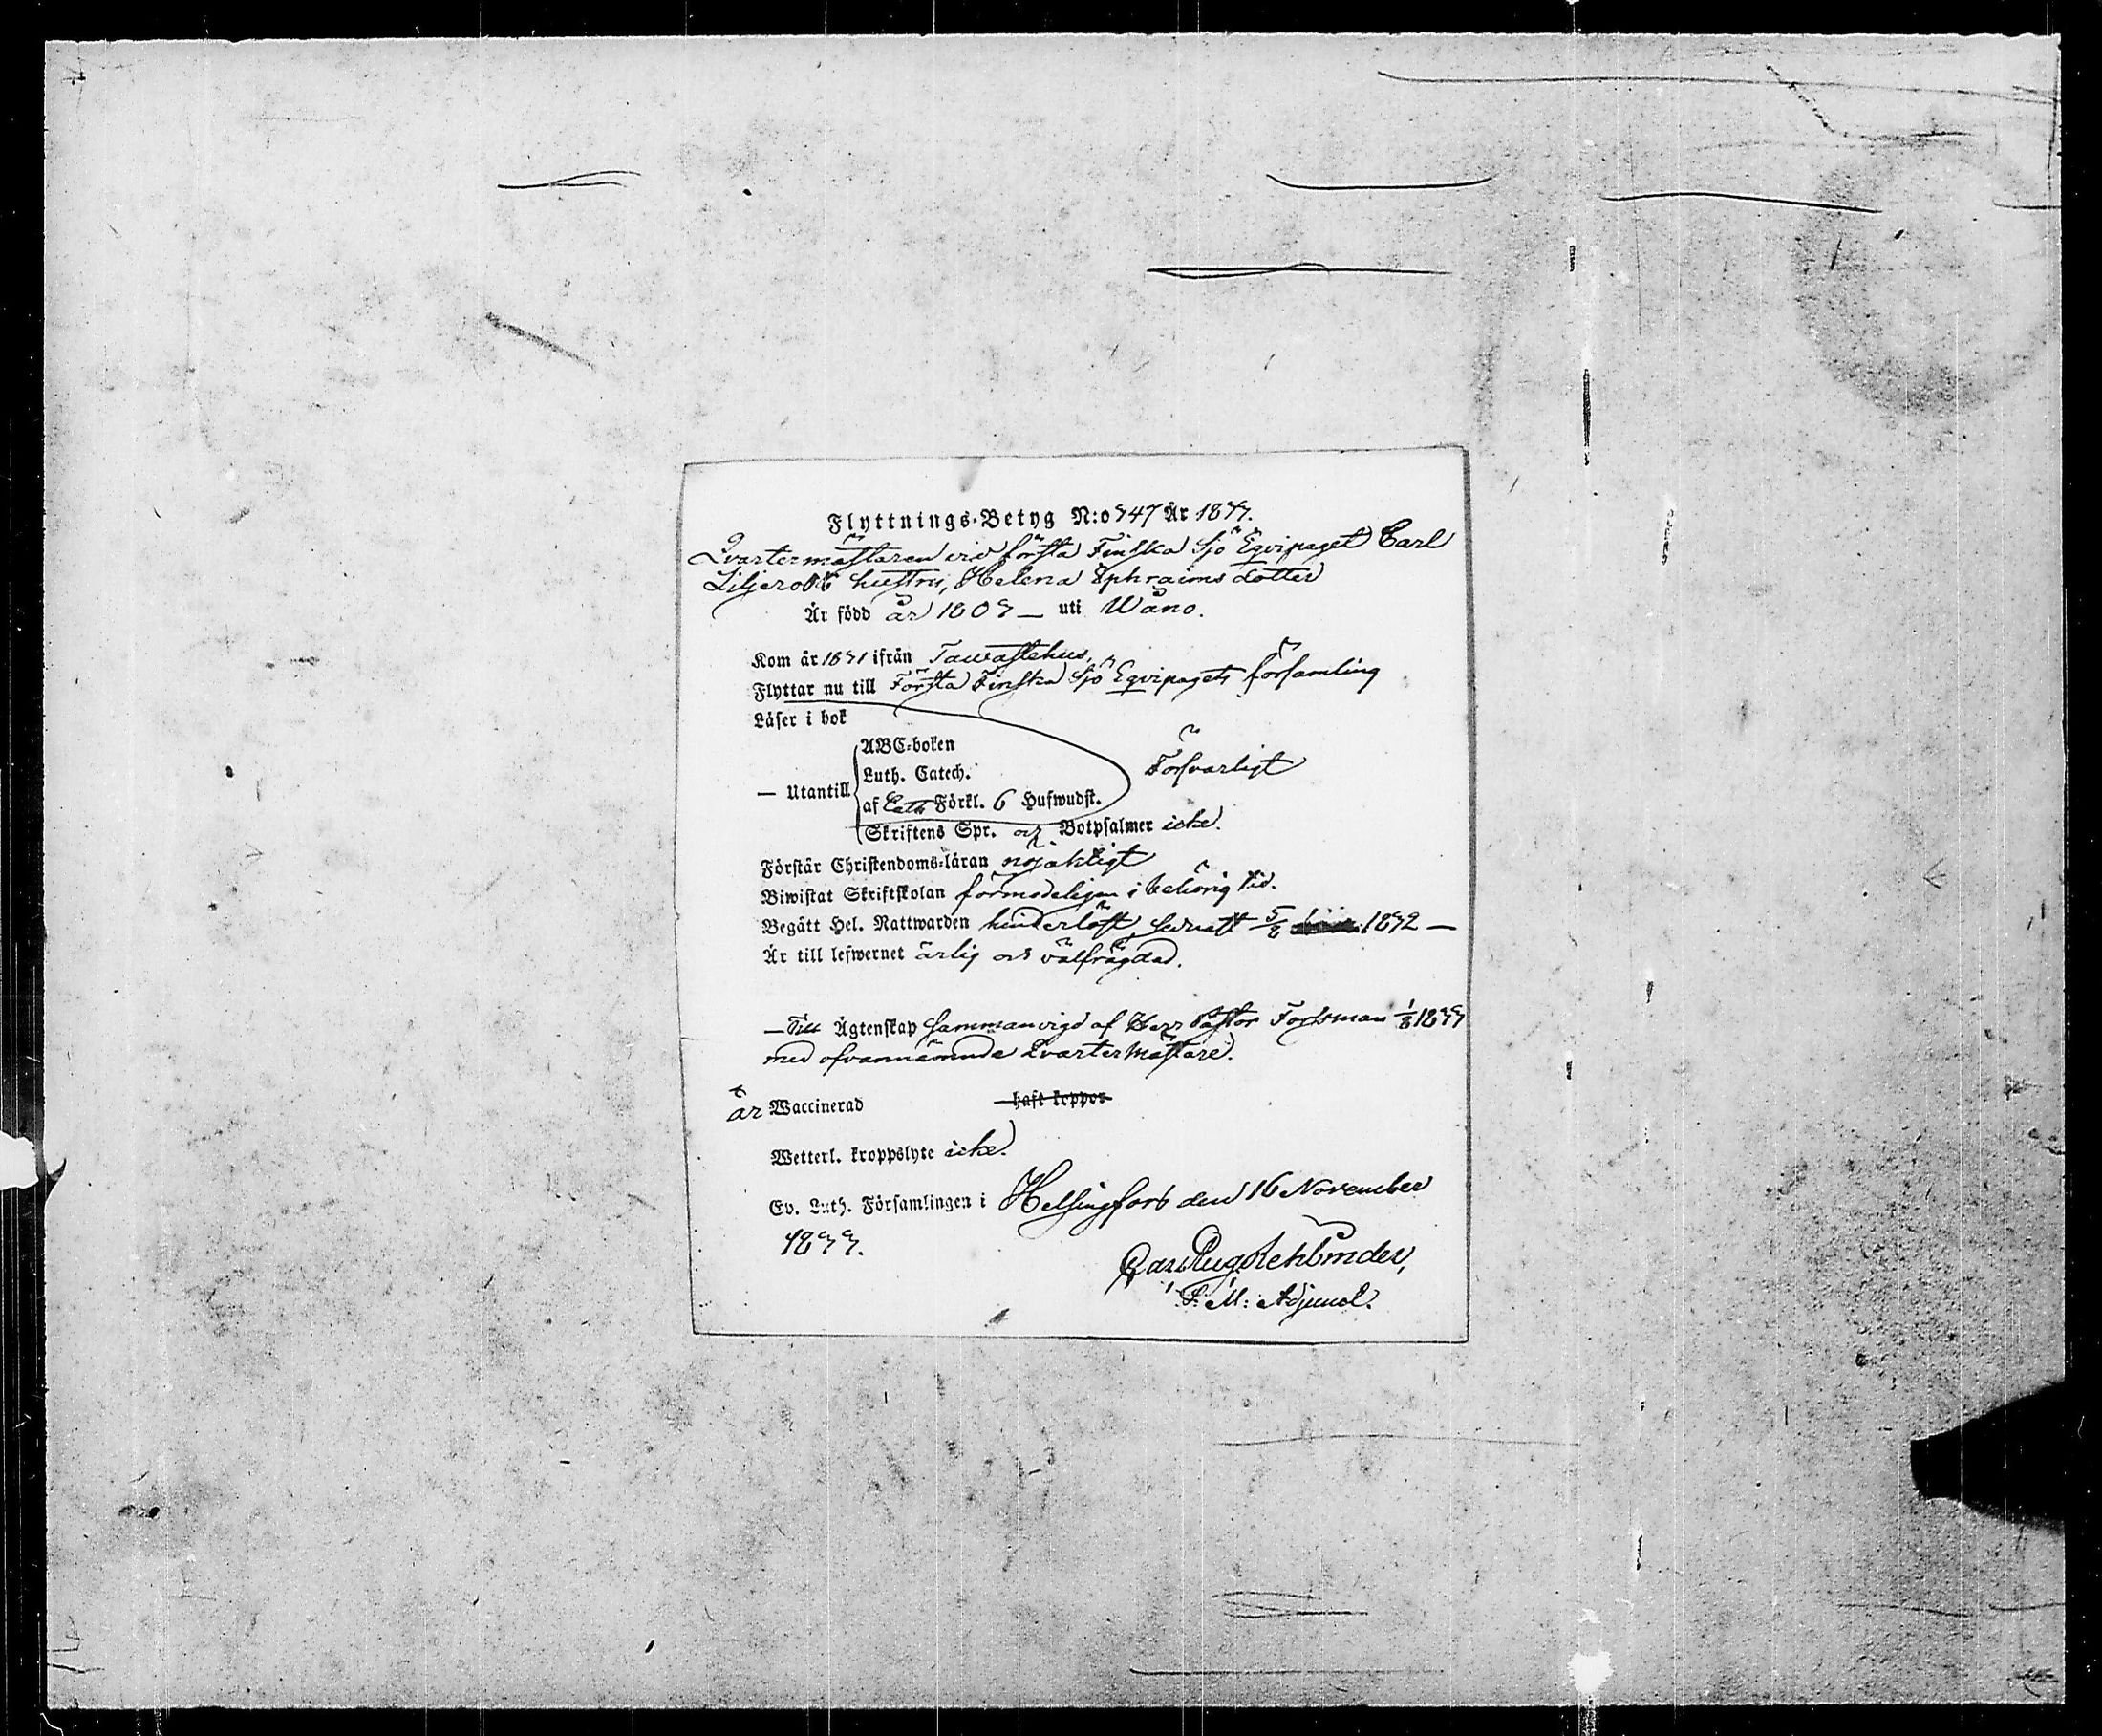 Flyttnings-Betyg N:o 347 År 1833.
Qvartermästaren vid första Finska Sjö Eqvipaget Carl
hustru, Helena Ephraims dotter
År född år 1803 — uti Wånå.
Kom år 1831 ifrån Tawastehus,
Flyttar nu till Första Finska Sjö Eqvipagets församling
Läser i bok
ABC-boken
Luth. Catech. Försvarligt
— Utantill
af Cate Förkl. 6 Hufwudst.
Skriftens Spr. och Botpsalmer icke.
Förstår Christendoms-läran nöjaktigt
Biwistat Skriftskolan förmodeligen i behörig tid.
Begått Hel. Nattwarden hinderlöst, sednast 5/8 1832 —
Är till lefwernet ärlig och välfrägdad.
— Till Ägtenskap sammanvigd af Herr Pastor Forsman 1/8 1833
med ofvannämnde Qvartermästare.
är Waccinerad haft koppor
Wetterl. kroppslyte icke.
Ev. Luth. Församlingen i Helsingfors den 16 November
1833.
Carl Aug. Rehbinder,
P: M: Adjunct.